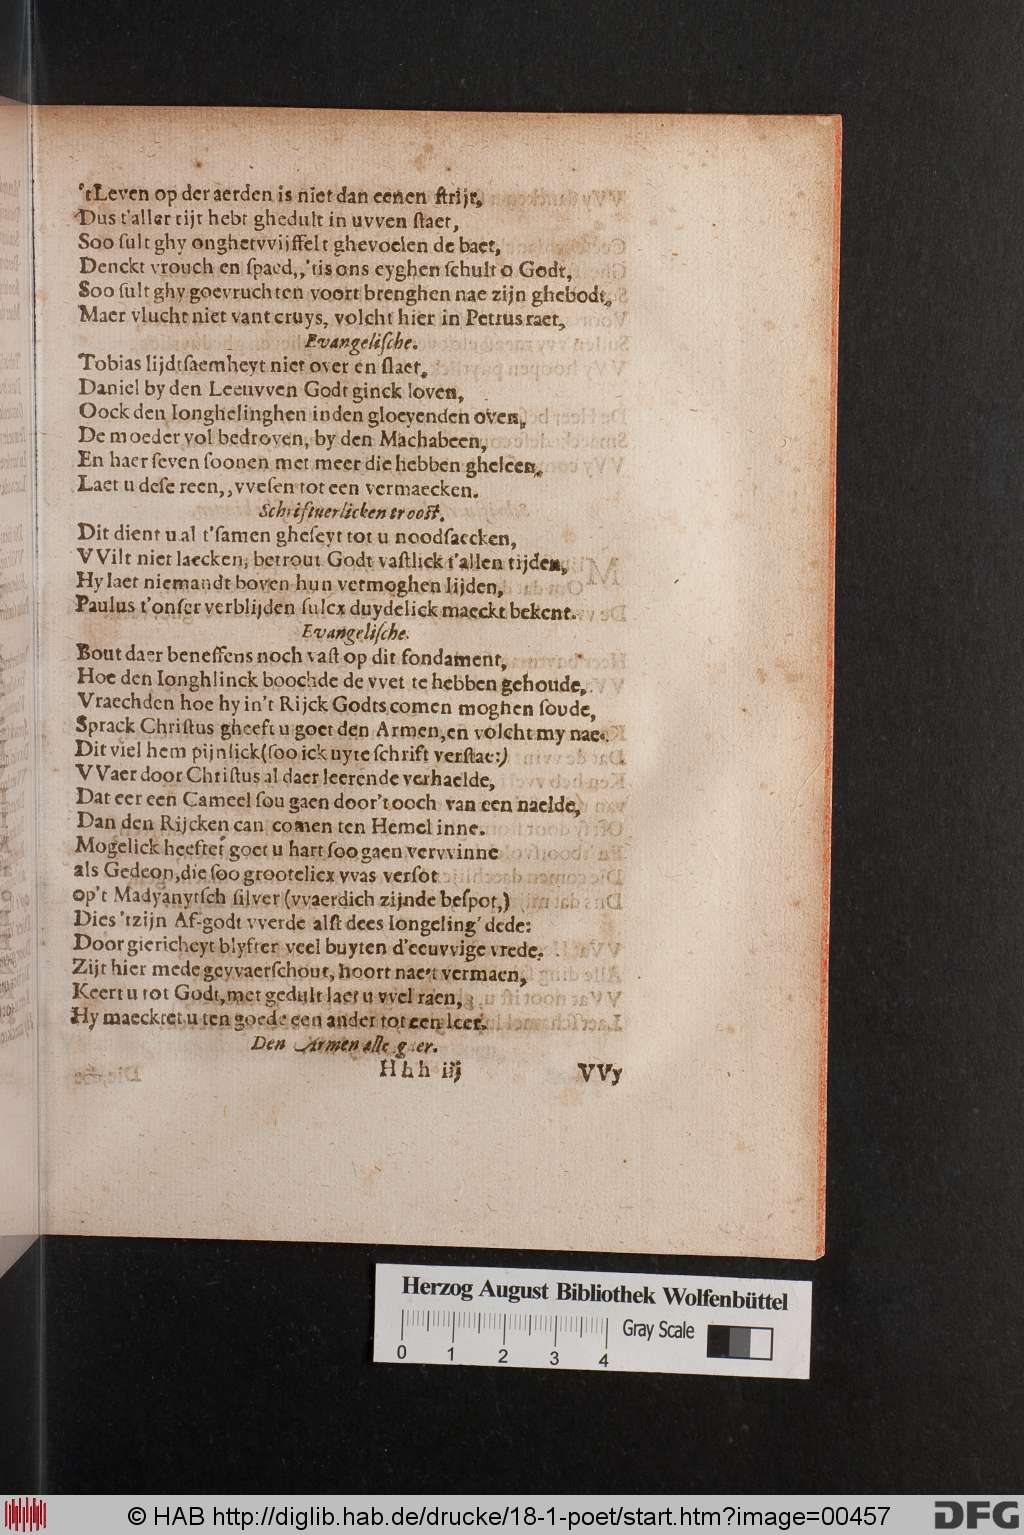 'tLeven op der aerden is niet dan eenen ſtrijt,
Dus t'aller tijt hebt ghedult in uvven ſtaet,
Soo ſult ghy onghetvvijffelt ghevoelen de baet,
Denckt vrouch en ſpaed,,'tis ons eyghen ſchult o Godt,
Soo ſult ghy goevruchten voort brenghen nae zijn ghebodt,
Maer vlucht niet vant cruys, volcht hier in Petrus raet,
Evangeliſche.
Tobias lijdtſaemheyt niet over en ſlaet,
Daniel by den Leeuvven Godt ginck loven,
Oock den Ionghelinghen inden gloeyenden oven,
De moeder vol bedroven, by den Machabeen,
En haer ſeven ſoonen met meer die hebben gheleen,
Laet u deſe reen,,vveſen tot een vermaecken.
Schriftuerlicken trooſt.
Dit dient u al t'ſamen gheſeyt tot u noodſaecken,
VVilt niet laecken, betrout Godt vaſtlick t'allen tijden,
Hy laet niemandt boven hun vermoghen lijden,
Paulus t'onſer verblijden ſulcx duydelick maeckt bekent.
Evangeliſche.
Bout daer beneffens noch vaſt op dit fondament,
Hoe den Ionghlinck boochde de vvet te hebben gehoude,
Vraechden hoe hy in't Rijck Godts comen moghen ſoude,
Sprack Chriſtus gheeft u goet den Armen, en volcht my nae.
Dit viel hem pijnlick (ſoo ick uyte ſchrift verſtae:)
VVaer door Chriſtus al daer leerende verhaelde,
Dat eer een Cameel ſou gaen door't ooch van een naelde,
Dan den Rijcken can comen ten Hemel inne.
Mogelick heeftet goet u hart ſoo gaen vervvinne
als Gedeon, die ſoo grootelicx vvas verſot
op't Madyanytſch ſilver (vvaerdich zijnde beſpot,)
Dies 'tzijn Af-godt vverde alſt dees Iongeling' dede:
Door giericheyt blyfter veel buyten d'eeuvvige vrede.
Zijt hier mede gevvaerſchout, hoort naer vermaen,
Keert u tot Godt, met gedult laet u vvel raen,
Hy maecktet u ten goede een ander tot een leer.
Den Armen alle gaer.
Hhh iij VVy
Herzog August Bibliothek Wolfenbüttel
0 1 2 3 4 Gray Scale
© HAB http://diglib.hab.de/drucke/18-1-poet/start.htm?image=00457 DFG